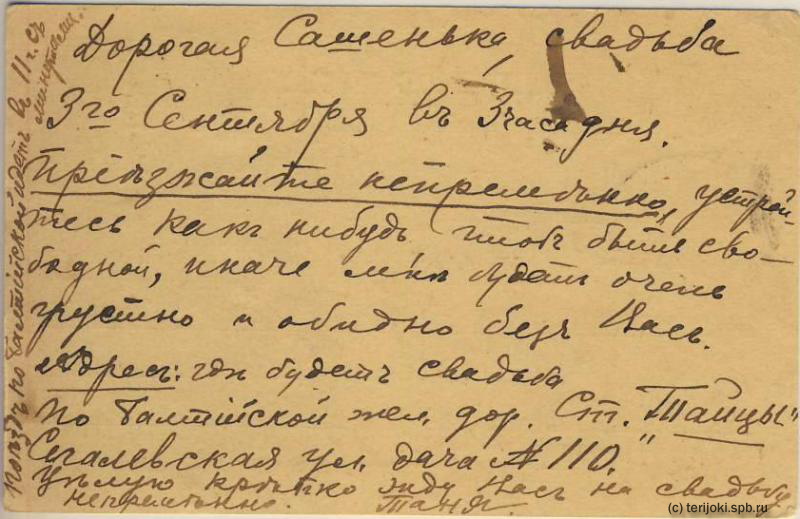 Дорогая Сашенька, свадьба
3го Сентября въ 3 часа дня.
Прiѣзжайте непремѣнно, устрой-
тесь какъ нибудь чтобъ быть сво-
бодной, иначе мнѣ будетъ очень
грустно и обидно безъ Васъ.
Адресъ: гдѣ будетъ свадьба
по Балтiйской жел. дор. Ст. "Тайцы"
ул. дача № 110.
Цѣлую крѣпко жду Васъ на свадьбу
непремѣнно. Таня.
поѣздъ по Балтiйской идетъ въ 11 ч. съ
минутами.
(c) terijoki.spb.ru